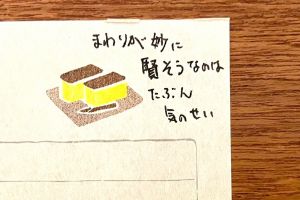 まわりが妙に
賢そうなのは
たぶん
気のせい